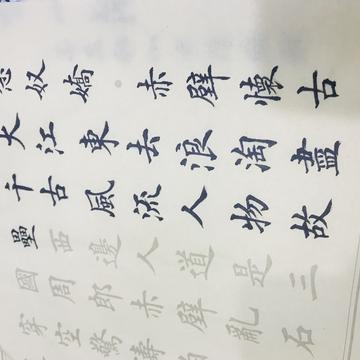 念奴嬌 赤壁懷古
大江東去浪淘盡
千古風流人物故
壘西邊人道是三
國周郎赤壁亂石
穿空驚濤